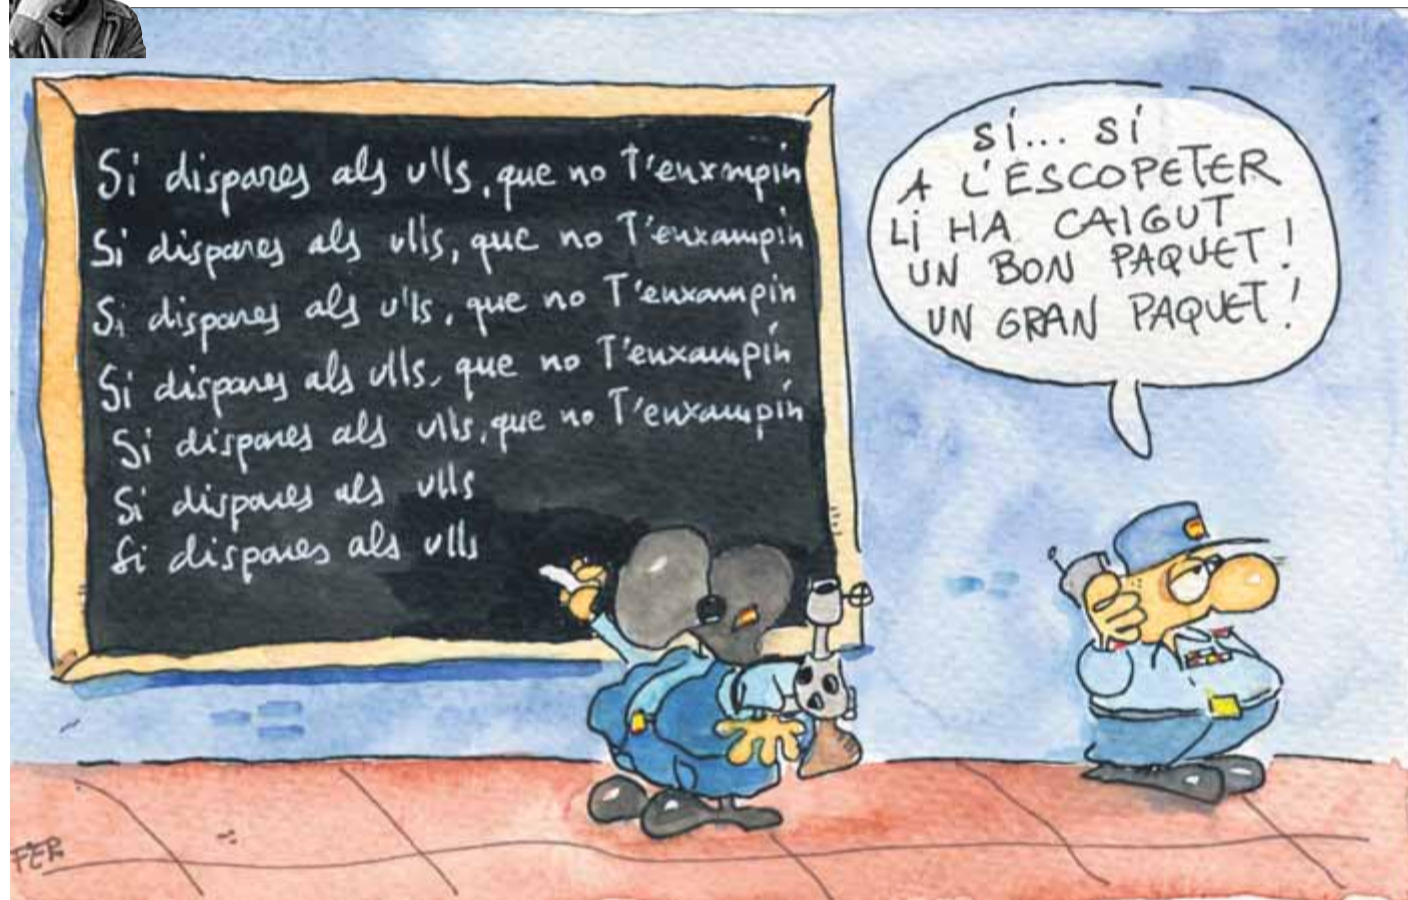 Si dispares als ulls, que no T'enxampin
Si dispares als ulls, que no T'enxampin
Si dispares als ulls, que no T'enxampin
Si dispares als ulls, que no T'enxampin
Si dispares als ulls, que no T'enxampin
Si dispares als ulls
Si dispares als ulls
SÍ... SÍ
A L'ESCOPETER
LI HA CAIGUT
UN BON PAQUET!
UN GRAN PAQUET!
FER